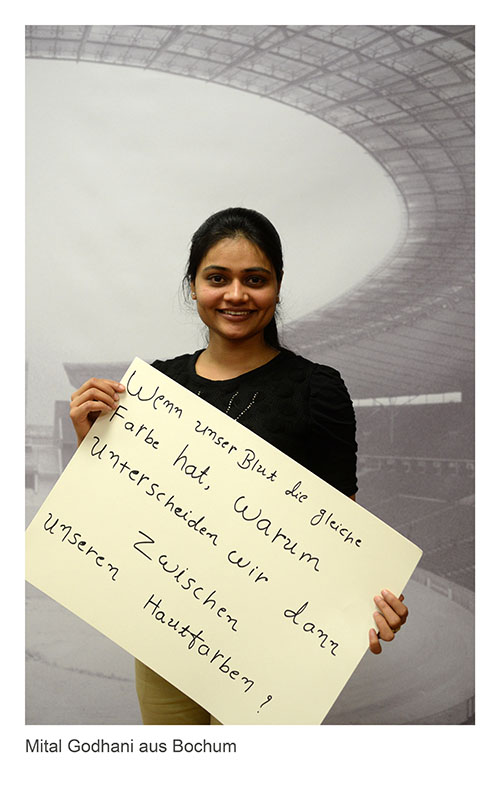 Wenn unser Blut die gleiche
Farbe hat, warum
unterscheiden wir dann
zwischen
unseren Hautfarben?
Mital Godhani aus Bochum